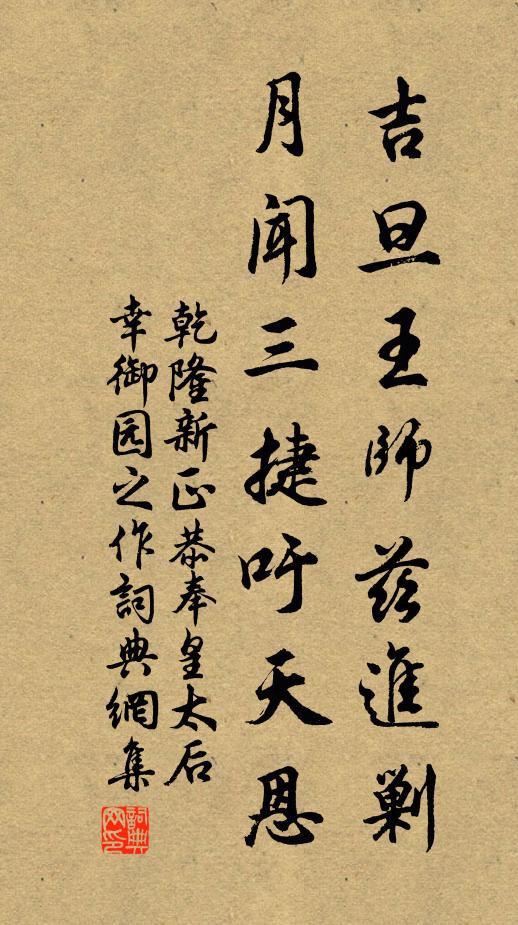 吉旦王師茲進剿
月聞三捷吁天恩
乾隆新正恭奉皇太后
幸御园之作詞典網集
詞典网印